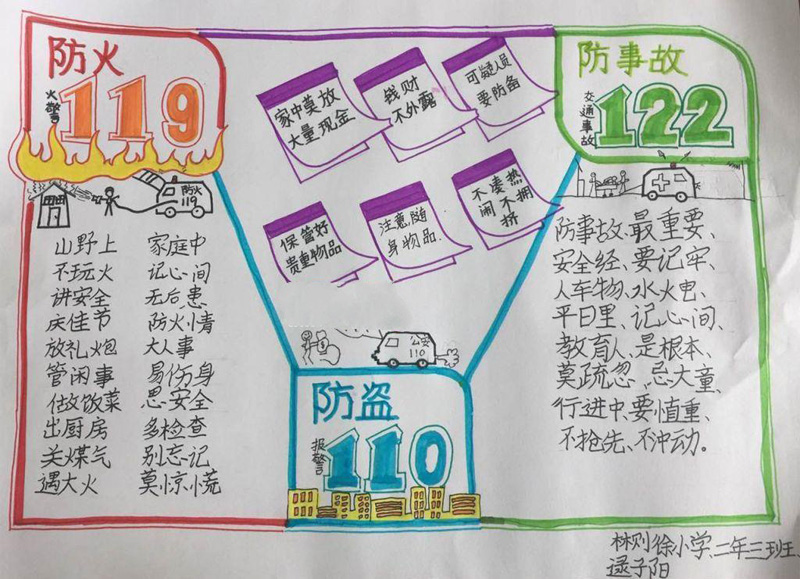 防火
火警
119
防火
119
山野上 家庭中
不玩火 记心间
讲安全 无后患
庆佳节 防火情
放礼炮 大人事
管闲事 易伤身
做饭菜 思安全
出厨房 多检查
关煤气 别忘记
遇大火 莫惊慌
家中莫放
大量现金
钱财
不外露
可疑人员
要防备
保管好
贵重物品
注意随
身物品.
不凑热
闹不拥
挤
公安
110
防盗
报警
110
防事故
交通事故
122
防事故、最重要、
安全经、要记牢、
人车物、水火电、
平日里、记心间、
教育人、是根本、
莫疏忽、忌大童、
行进中、要慎重、
不抢先、不冲动。
林则徐小学、二年三班、
逯子阳